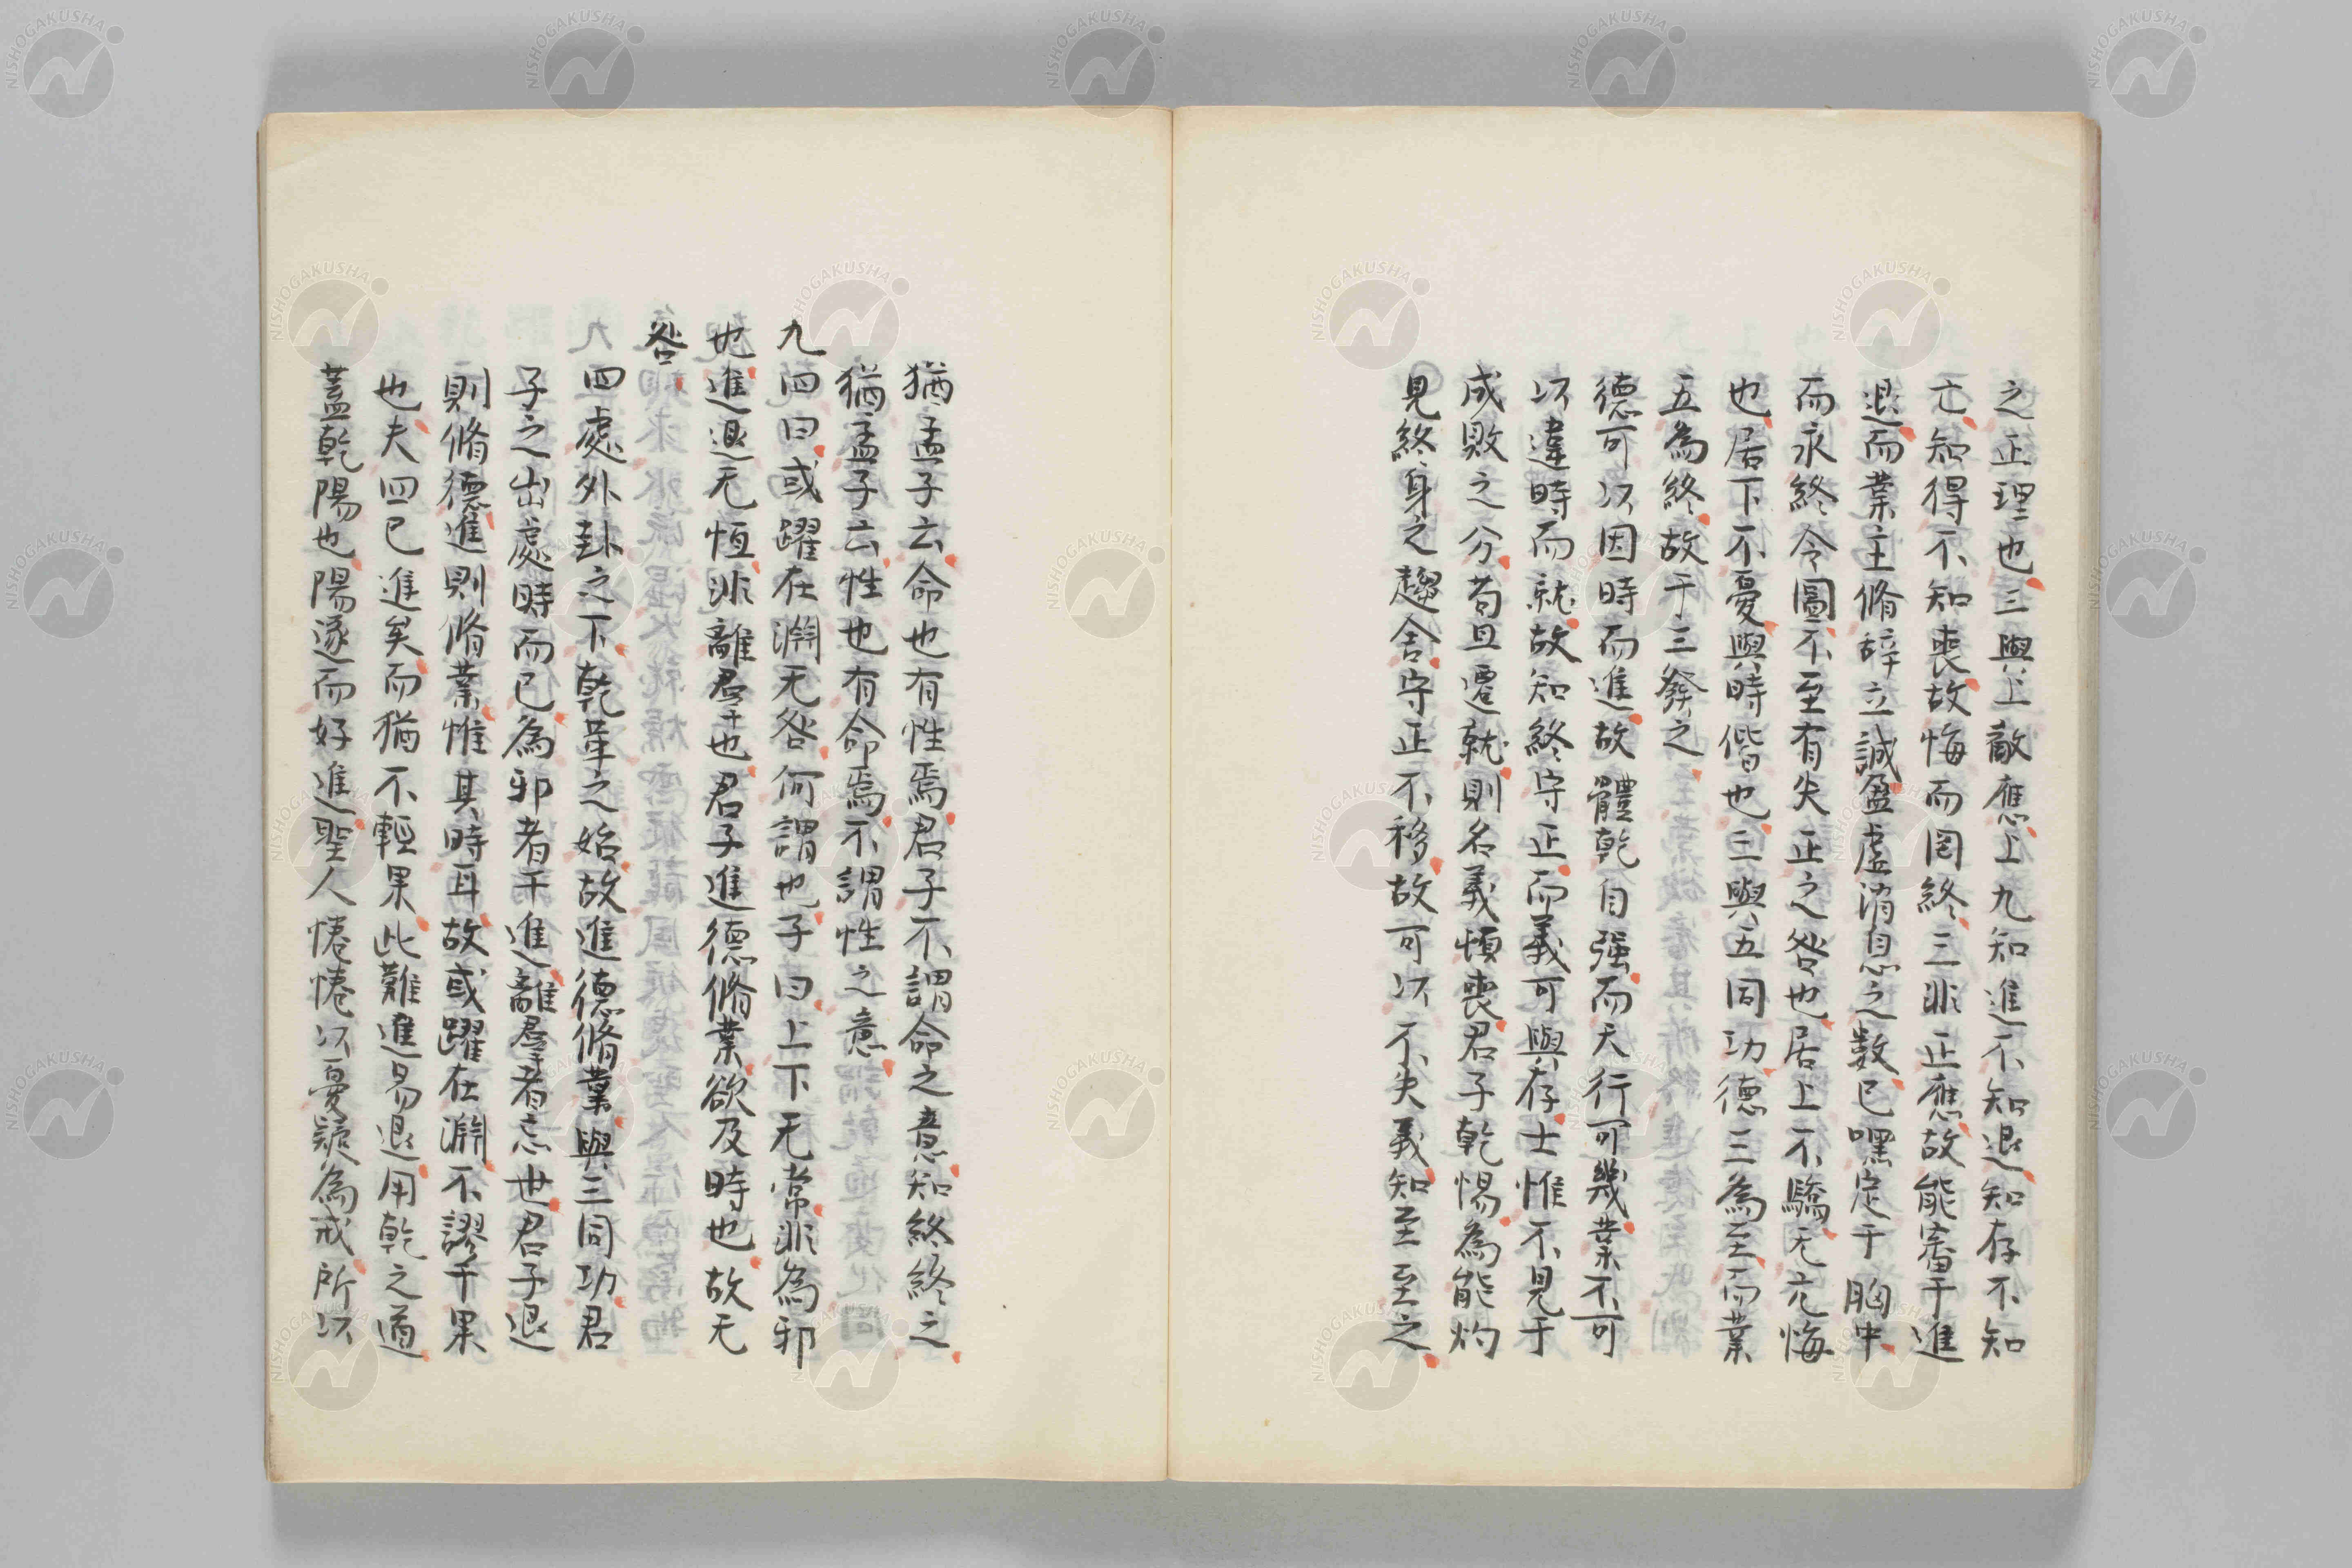 之正理也三與上敵應上九知進不知退知存不知
亡知得不知喪故悔而罔終三非正應故能審于進
退而業主脩辞立誠盈虛消息之數已嘿定于胸中
而永終令圖不至有失正之咎也居上不驕无亢悔
也居下不憂與時偕也三與五同功德三為至而業
五為終故于三發之
德可以因時而進故體乾自强而天行可幾業不可
以違時而就故知終守正而義可與存士惟不見于
成敗之分苟且遷就則名義頓喪君子乾惕為能灼
見終身之趨舍守正不移故可以不失義知至至之
猶孟子云命也有性焉君子不謂命之意知終終之
猶孟子云性也有命焉不謂性之意
九四曰或躍在淵无咎何謂也子曰上下无常非為邪
也進退无恆非離羣也君子進德脩業欲及時也故无
咎
四處外卦之下乾革之始故進德脩業與三同功君
子之出處時而已為邪者干進離羣者忘世君子退
則脩德進則脩業惟其時耳故或躍在淵不謬于果
也夫四已進矣而猶不輕果此難進易退用乾之道
蓋乾陽也陽遂而好進聖人惓惓以憂疑為戒所以
NISHOGAKUSHA